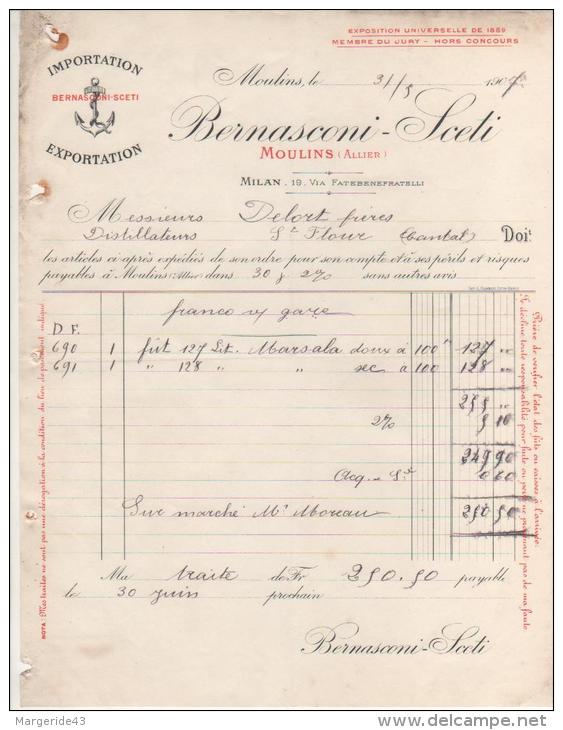 EXPOSITION UNIVERSELLE DE 1889
MEMBRE DU JURY - HORS CONCOURS
IMPORTATION
BERNASCONI-SCETI
EXPORTATION
Moulins, le 31/5 1907
Bernasconi-Sceti
MOULINS (ALLIER)
MILAN . 19. VIA FATEBENEFRATELLI
Messieurs Delort frères
Distillateurs St Flour (Cantal) Doit
les articles ci-après expédiés de son ordre pour son compte et à ses périls et risques
payables à Moulins (Allier) dans 30 j 2% sans autres avis
franco v/ gare
D F.
690 1 fût 127 Lit. Marsala doux à 100 127 "
691 1 " 128 " " sec à 100 128 "
255 "
2% 5 10
249 90
Acq. 0 60
Sur marché Mr Moreau 250 50
Ma traite de Fr 250.50 payable
le 30 juin prochain
Bernasconi-Sceti
NOTA: Mes traites ne sont pas une dérogation à la condition du lieu de paiement indiqué
Prière de vérifier l'état des fûts ou caisses à l'arrivée.
Je décline toute responsabilité pour fuite ou perte ne provenant pas de ma faute
Margeride43
delcampe.net